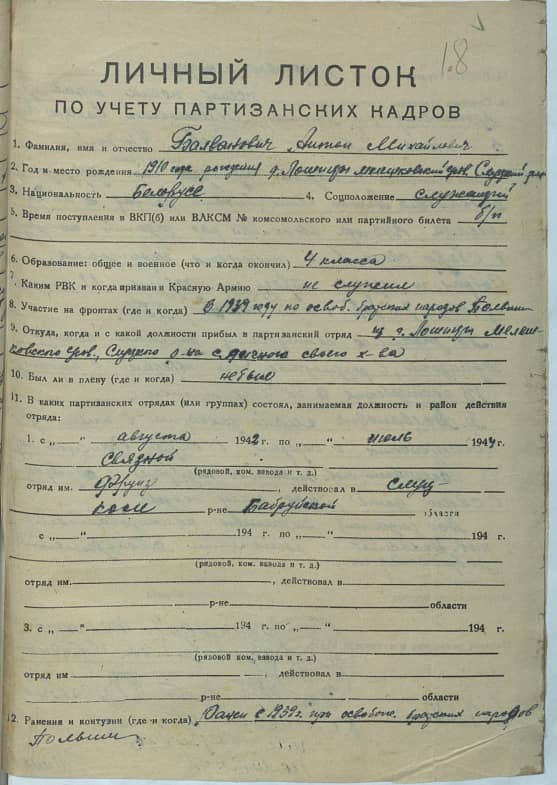 18
ЛИЧНЫЙ ЛИСТОК
ПО УЧЕТУ ПАРТИЗАНСКИХ КАДРОВ
1. Фамилия, имя и отчество Балванович Антон Михайлович
2. Год и место рождения 1910 года рождения д. Лешницы сов. Слуцкий
3. Национальность Белорусс 4. Соцположение служащий
5. Время поступления в ВКП(б) или ВЛКСМ № комсомольского или партийного билета б/п
6. Образование: общее и военное (что и когда окончил) 4 класса
7. Каким РВК и когда призван в Красную Армию не служил
8. Участие на фронтах (где и когда) В 1939 году по освоб. братских народов Польши
9. Откуда, когда и с какой должности прибыл в партизанский отряд из
ковского сов., Слуцкого р-на с личного своего х-ва
10. Был ли в плену (где и когда) не был
11. В каких партизанских отрядах (или группах) состоял, занимаемая должность и район действия
отряда:
1. с „ “ августа 1942 г. по „ “ июль 1944 г.
связной
(рядовой, ком. взвода и т. д.)
отряд им. Фрунзе, действовал в Слуц-
ком р-не Бабруйской области
с „ “ 194 г. по „ “ 194 г.
(рядовой, ком. взвода и т. д.)
отряд им. , действовал в
р-не области
3. с „ “ 194 г. по „ “ 194 г.
(рядовой, ком. взвода и т. д.)
отряд им , действовал в
р-не области
12. Ранения и контузии (где и когда) Ранен в 1939 г. при освобож. братских народов
Польши